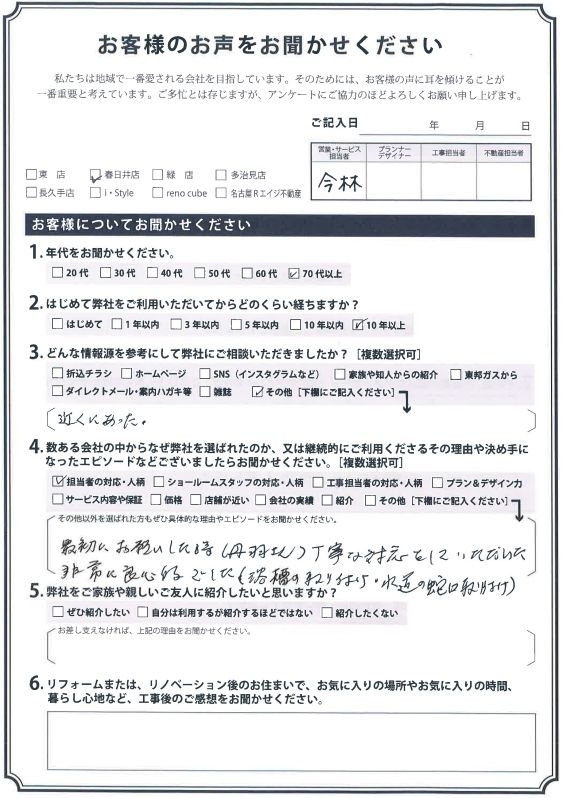 お客様のお声をお聞かせください
私たちは地域で一番愛される会社を目指しています。そのためには、お客様の声に耳を傾けることが
一番重要と考えています。ご多忙とは存じますが、アンケートにご協力のほどよろしくお願い申し上げます。
ご記入日 年 月 日
営業・サービス担当者 プランナーデザイナー 工事担当者 不動産担当者
今林
□東 店 ☑春日井店 □緑 店 □多治見店
□長久手店 □i・Style □reno cube □名古屋Rエイジ不動産
お客様についてお聞かせください
1. 年代をお聞かせください。
□20代 □30代 □40代 □50代 □60代 ☑70代以上
2. はじめて弊社をご利用いただいてからどのくらい経ちますか？
□はじめて □1年以内 □3年以内 □5年以内 □10年以内 ☑10年以上
3. どんな情報源を参考にして弊社にご相談いただきましたか？［複数選択可］
□折込チラシ □ホームページ □SNS（インスタグラムなど） □家族や知人からの紹介 □東邦ガスから
□ダイレクトメール・案内ハガキ等 □雑誌 ☑その他［下欄にご記入ください］
近くにあった。
4. 数ある会社の中からなぜ弊社を選ばれたのか、又は継続的にご利用くださるその理由や決め手に
なったエピソードなどございましたらお聞かせください。［複数選択可］
☑担当者の対応・人柄 □ショールームスタッフの対応・人柄 □工事担当者の対応・人柄 □プラン＆デザイン力
□サービス内容や保証 □価格 □店舗が近い □会社の実績 □紹介 □その他［下欄にご記入ください］
その他以外を選ばれた方もぜひ具体的な理由やエピソードをお聞かせください。
最初にお願いした時（丹羽さん）丁寧な対応をしていただいた
非常に良心的でした（浴槽の取り付け・水道の蛇口取り付け）
5. 弊社をご家族や親しいご友人に紹介したいと思いますか？
□ぜひ紹介したい □自分は利用するが紹介するほどではない □紹介したくない
お差し支えなければ、上記の理由をお聞かせください。
6. リフォームまたは、リノベーション後のお住まいで、お気に入りの場所やお気に入りの時間、
暮らし心地など、工事後のご感想をお聞かせください。